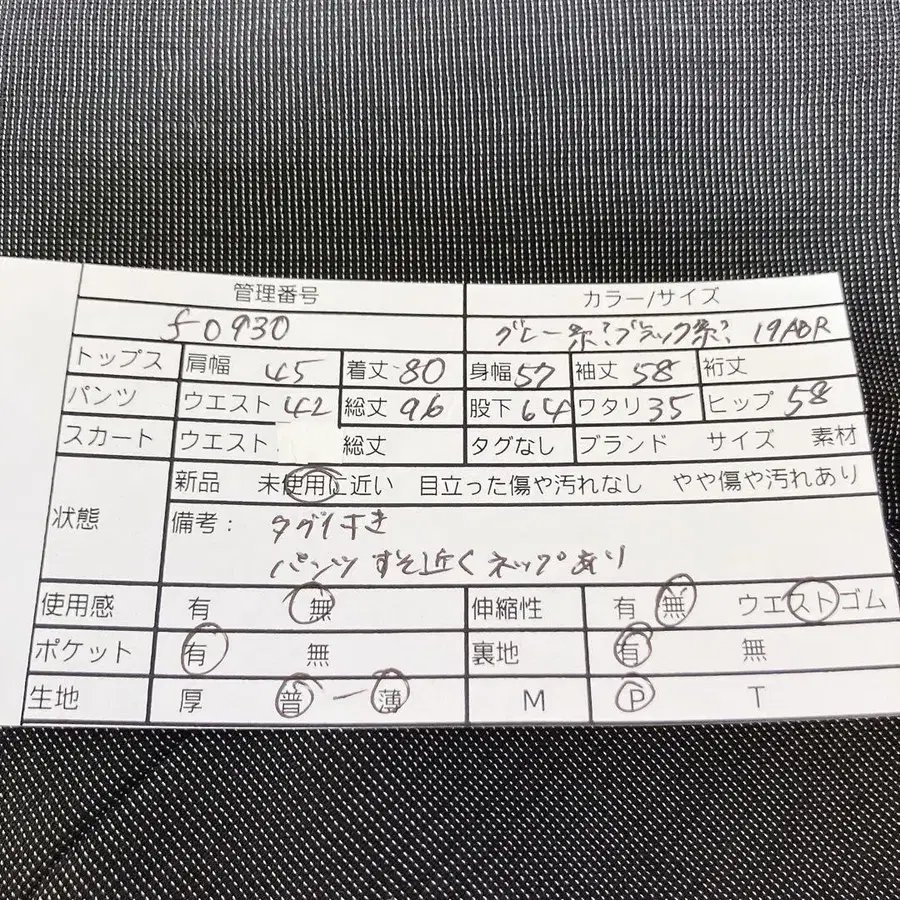 管理番号 カラー/サイズ
f0930 グレー系?ブラック系? 19ABR
トップス 肩幅 45 着丈 80 身幅 57 袖丈 58 裄丈
パンツ ウエスト 42 総丈 96 股下 64 ワタリ 35 ヒップ 58
スカート ウエスト 総丈 タグなし ブランド サイズ 素材
状態 新品 未使用に近い 目立った傷や汚れなし やや傷や汚れあり
備考: タグ付き
パンツすそ近くネップあり
使用感 有 無 伸縮性 有 無 ウエストゴム
ポケット 有 無 裏地 有 無
生地 厚 普 ー 薄 M P T